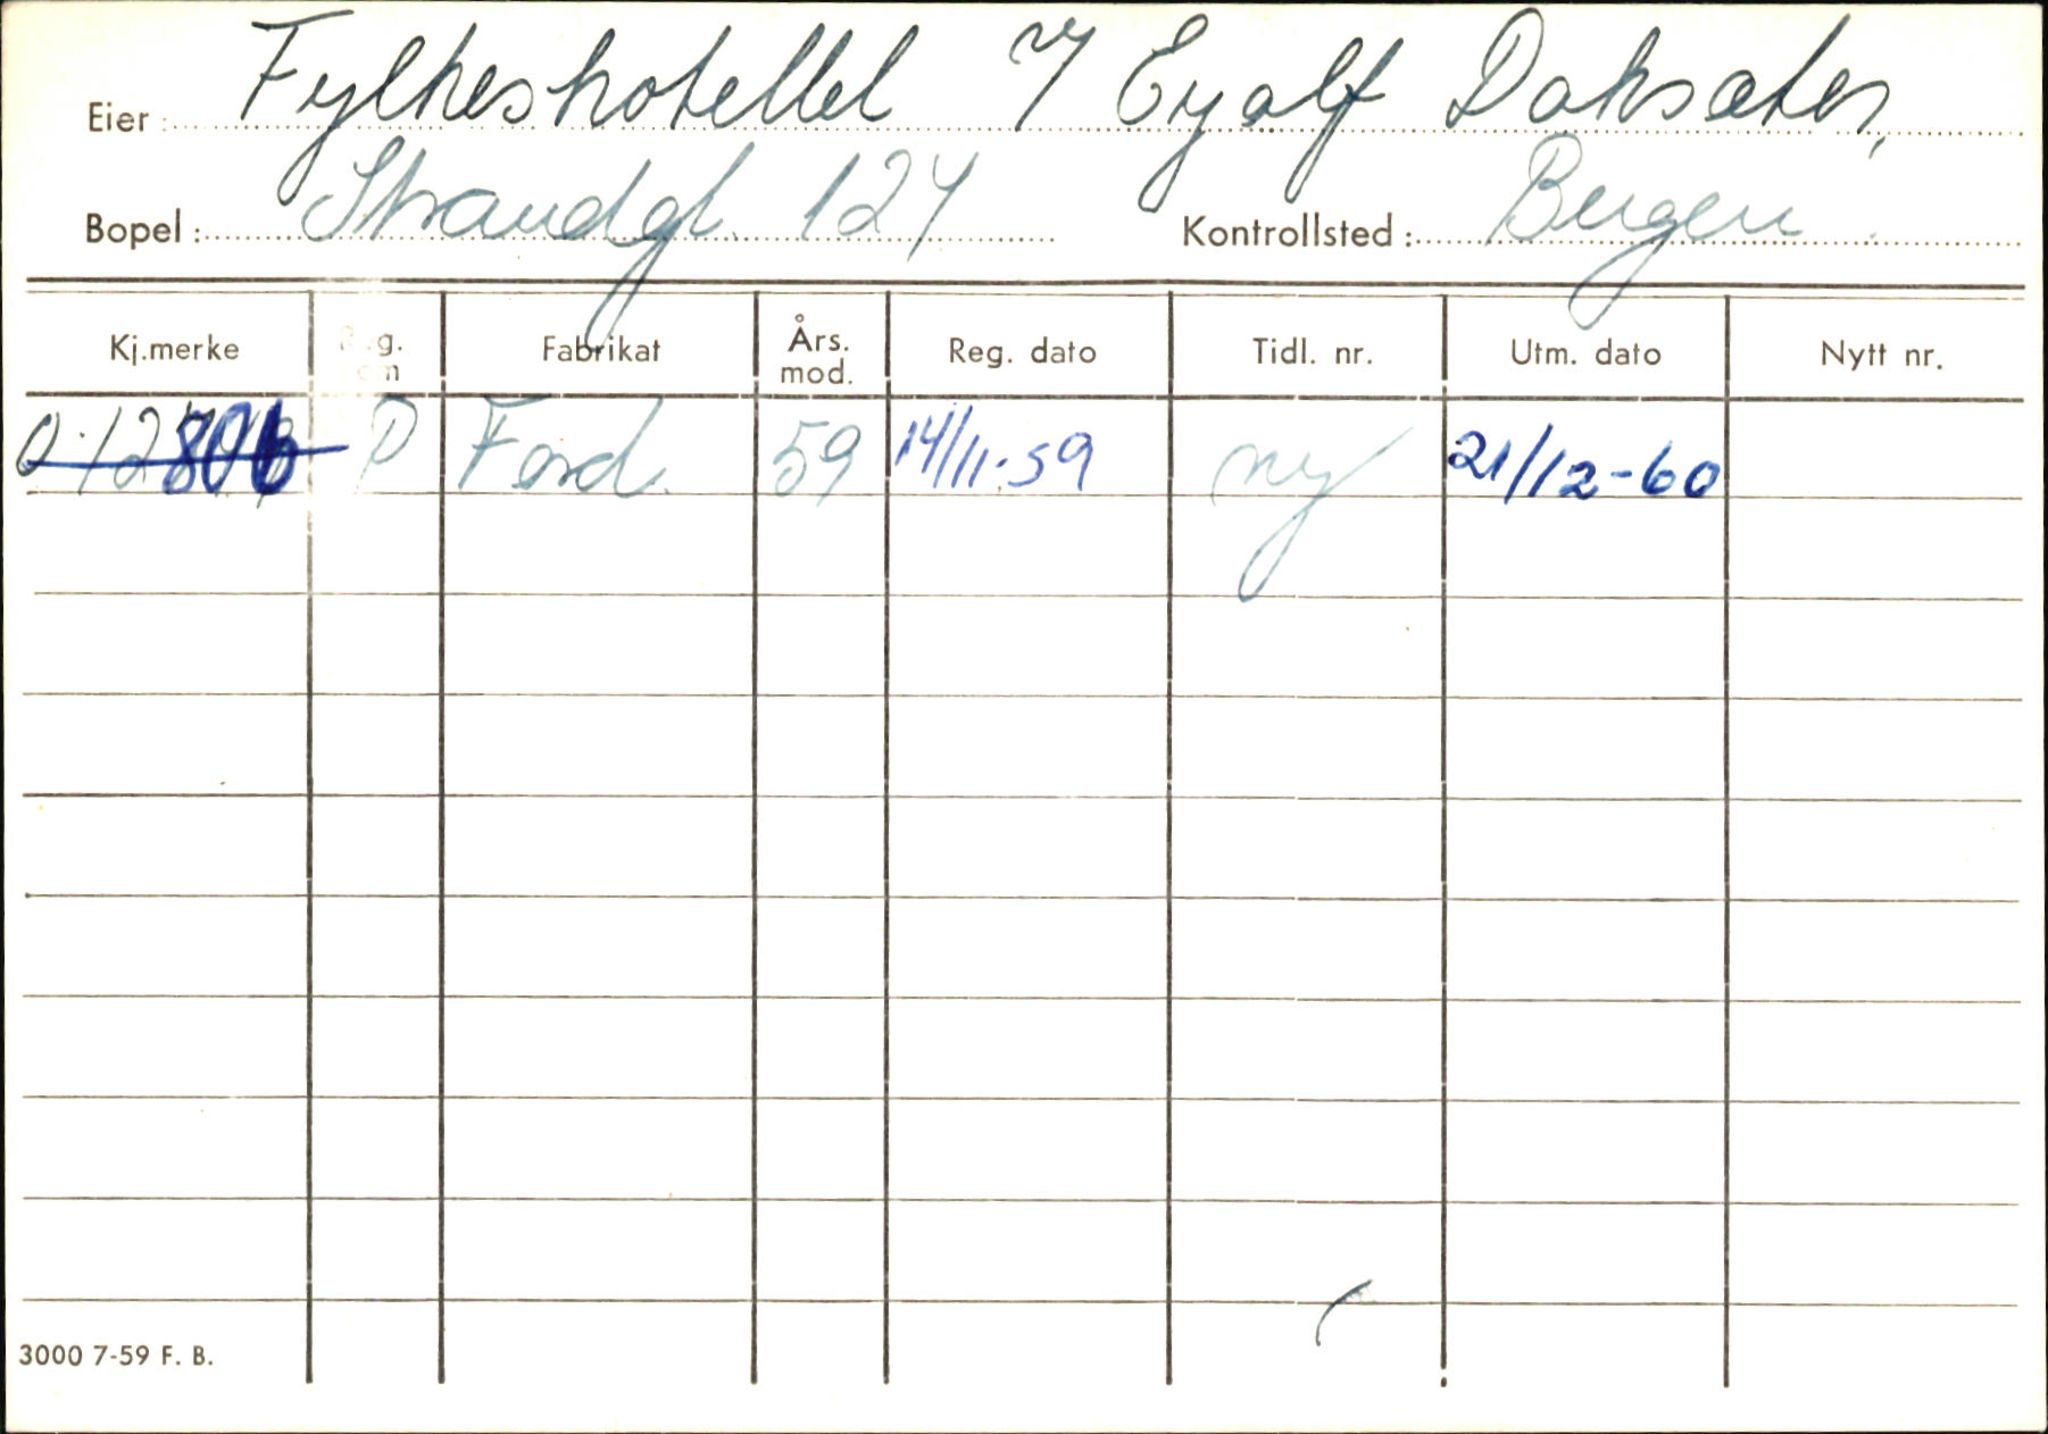 Eier: Fylkeshotellet v/ Eyolf Daksæter,
Bopel: Strandgt. 124 Kontrollsted: Bergen
Kj.merke Reg. om Fabrikat Års. mod. Reg. dato Tidl. nr. Utm. dato Nytt nr.
P Ford 59 14/11-59 ny 21/12-60
3000 7-59 F. B.